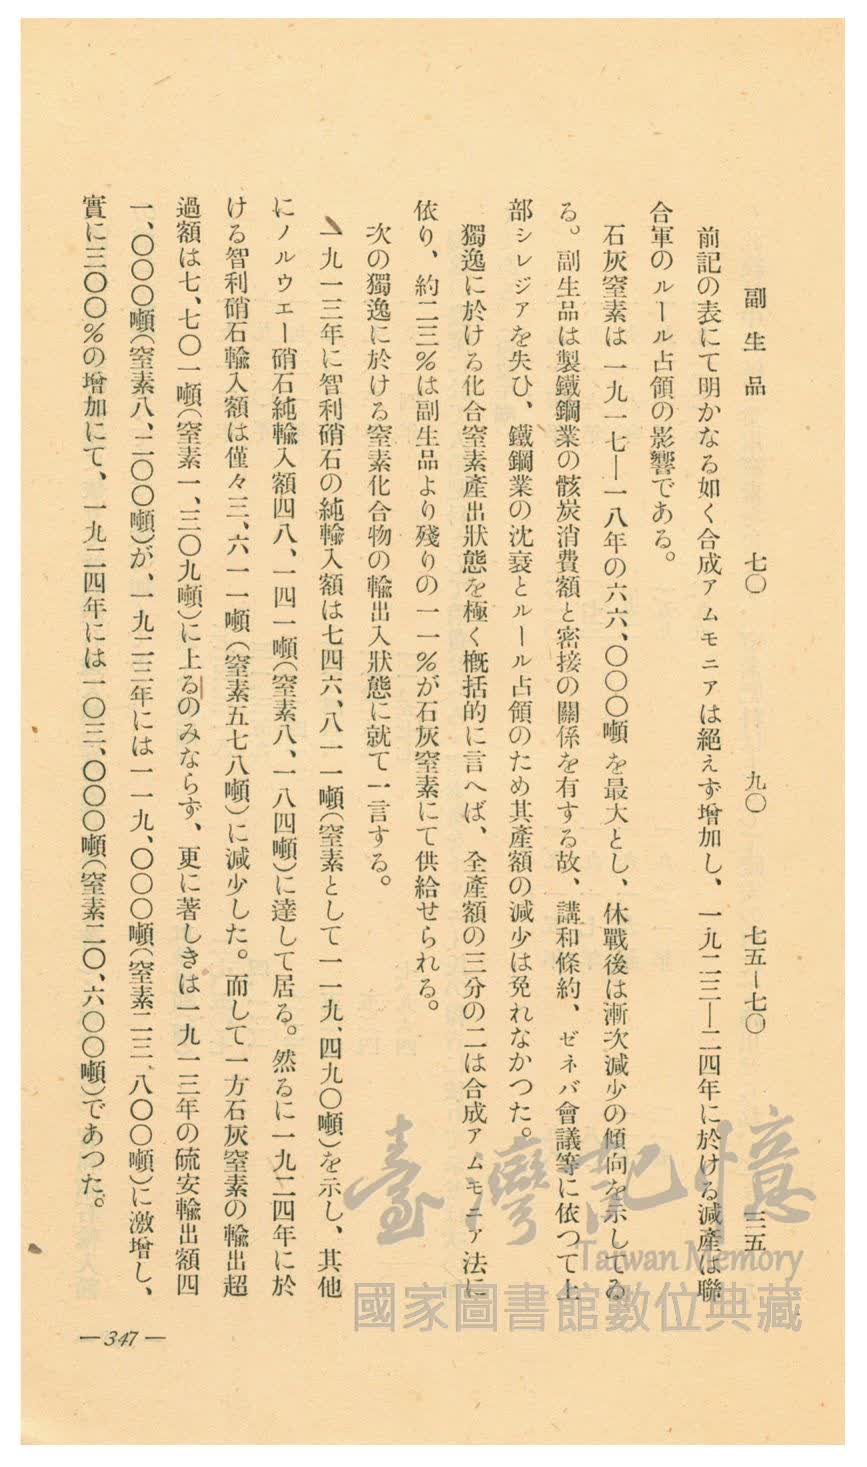 副生品　七〇　九〇　七五—七〇　三五
前記の表にて明かなる如く合成アムモニアは絕えず增加し、一九二三—二四年に於ける減產は聯
合軍のルール占領の影響である。
石灰窒素は一九一七—一八年の六六、〇〇〇噸を最大とし、休戰後は漸次減少の傾向を示してゐ
る。副生品は製鐵鋼業の骸炭消費額と密接の關係を有する故、講和條約、ゼネバ會議等に依つて上
部シレジアを失ひ、鐵鋼業の沈衰とルール占領のため其產額の減少は免れなかつた。
獨逸に於ける化合窒素產出狀態を極く槪括的に言へば、全產額の三分の二は合成アムモニア法に
依り、約二三％は副生品より殘りの一一％が石灰窒素にて供給せられる。
次の獨逸に於ける窒素化合物の輸出入狀態に就て一言する。
一九一三年に智利硝石の純輸入額は七四六、八一一噸（窒素として一一九、四九〇噸）を示し、其他
にノルウエー硝石純輸入額四八、一四一噸（窒素八、一八四噸）に達して居る。然るに一九二四年に於
ける智利硝石輸入額は僅々三、六一一噸（窒素五七八噸）に減少した。而して一方石灰窒素の輸出超
過額は七、七〇一噸（窒素一、三〇九噸）に上るのみならず、更に著しきは一九一三年の硫安輸出額四
一、〇〇〇噸（窒素八、二〇〇噸）が、一九二三年には一一九、〇〇〇噸（窒素二三、八〇〇噸）に激增し、
實に三〇〇％の增加にて、一九二四年には一〇三、〇〇〇噸（窒素二〇、六〇〇噸）であつた。
— 347 —
臺灣記憶
Taiwan Memory
國家圖書館數位典藏